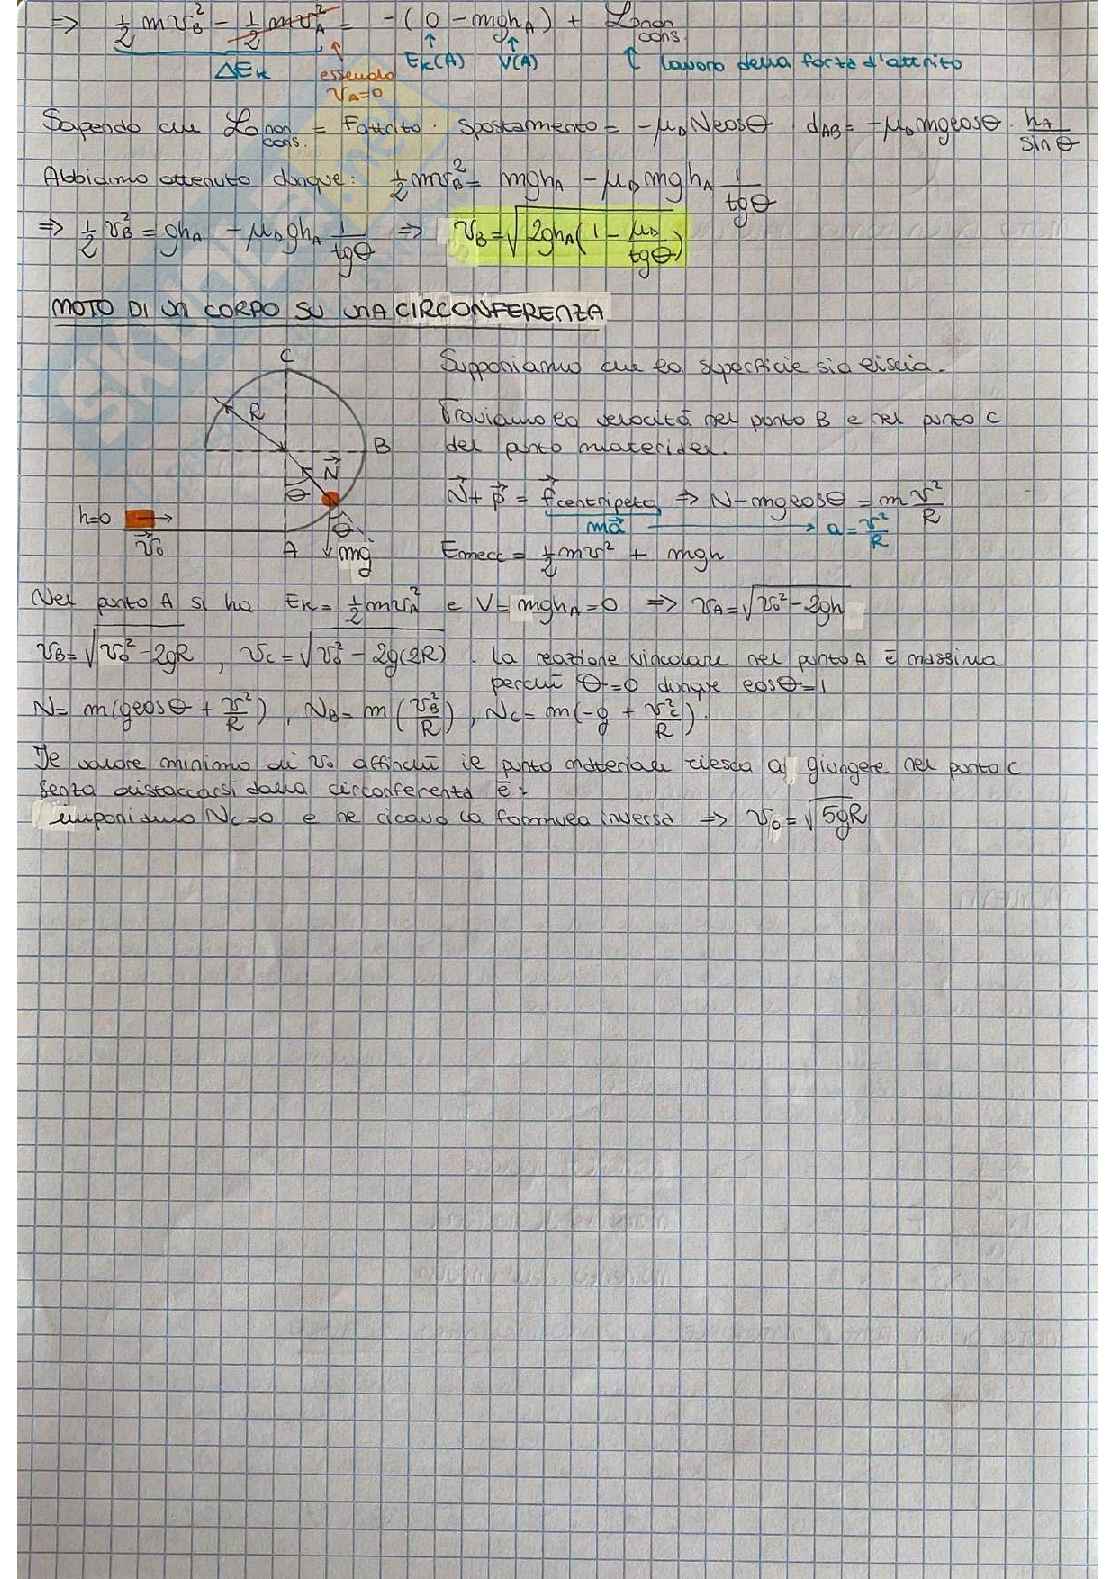 ⇒ ½mv_B² - ½mv_A² = -(0 - mgh_A) + L_non cons.
ΔE_K essendo v_A=0 E_K(A) V(A) lavoro della forza d'attrito
Sapendo che L_non cons. = Fattrito · spostamento = -μ_D N cosθ d_AB = -μ_D mg cosθ · h_A/sinθ
Abbiamo ottenuto dunque: ½mv_B² = mgh_A - μ_D mgh_A 1/tgθ
⇒ ½v_B² = gh_A - μ_D gh_A 1/tgθ ⇒ v_B = √(2gh_A(1 - μ_D/tgθ))
MOTO DI UN CORPO SU UNA CIRCONFERENZA
C
R
B
N
θ
h=0
v₀
A
θ
mg
Supponiamo che la superficie sia liscia.
Troviamo la velocità nel punto B e nel punto C
del punto materiale.
N + P = f_centripeta ⇒ N - mg cosθ = m v²/R
ma → a = v²/R
Emecc = ½mv² + mgh
Nel punto A si ha E_K = ½mv_A² e V = mgh_A = 0 ⇒ v_A = √(v₀² - 2gh)
v_B = √(v₀² - 2gR) , v_C = √(v₀² - 2g(2R)) . La reazione vincolare nel punto A è massima
perchè θ=0 dunque cosθ=1
N = m(g cosθ + v²/R) , N_B = m(v_B²/R) , N_C = m(-g + v_C²/R).
Il valore minimo di v₀ affinchè il punto materiale riesca a giungere nel punto C
senza distaccarsi dalla circonferenza è:
imponiamo N_C=0 e ne ricavo la formula inversa ⇒ v₀ = √5gR